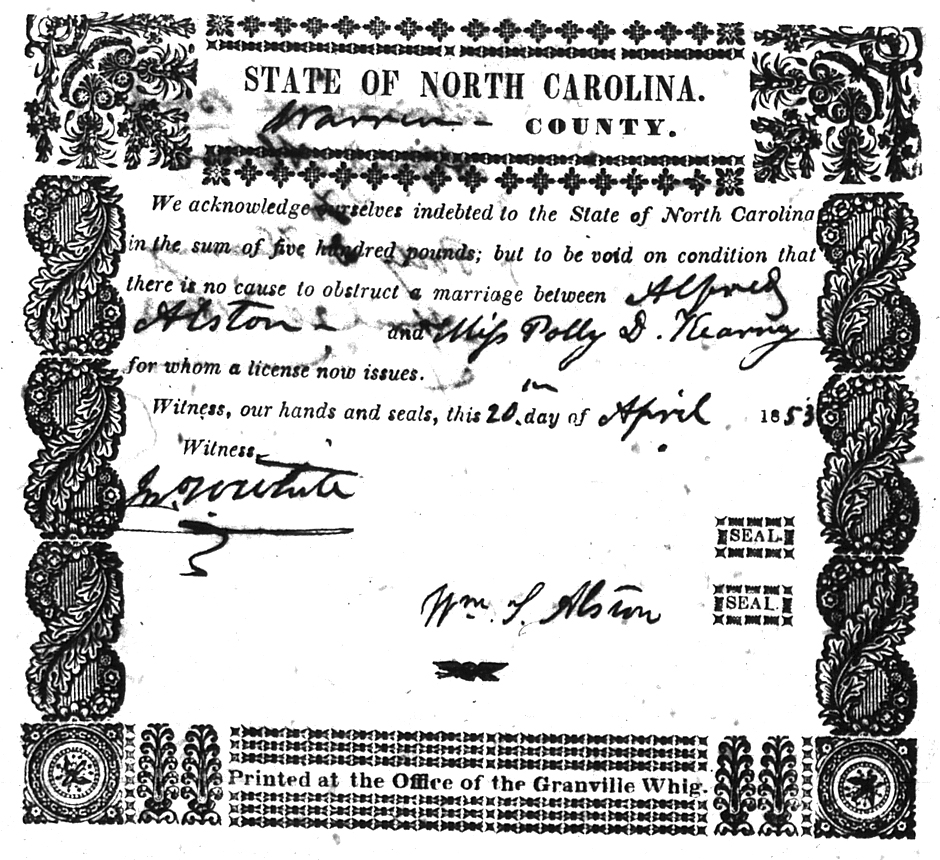 STATE OF NORTH CAROLINA.
Warren COUNTY.
We acknowledge ourselves indebted to the State of North Carolina
in the sum of five hundred pounds; but to be void on condition that
there is no cause to obstruct a marriage between Alfred
Alston - and Miss Polly D. Kearny
for whom a license now issues.
Witness, our hands and seals, this 20 day of April 1853
Witness,
Jn. W White
SEAL.
Wm. S. Alston SEAL.
Printed at the Office of the Granville Whig.